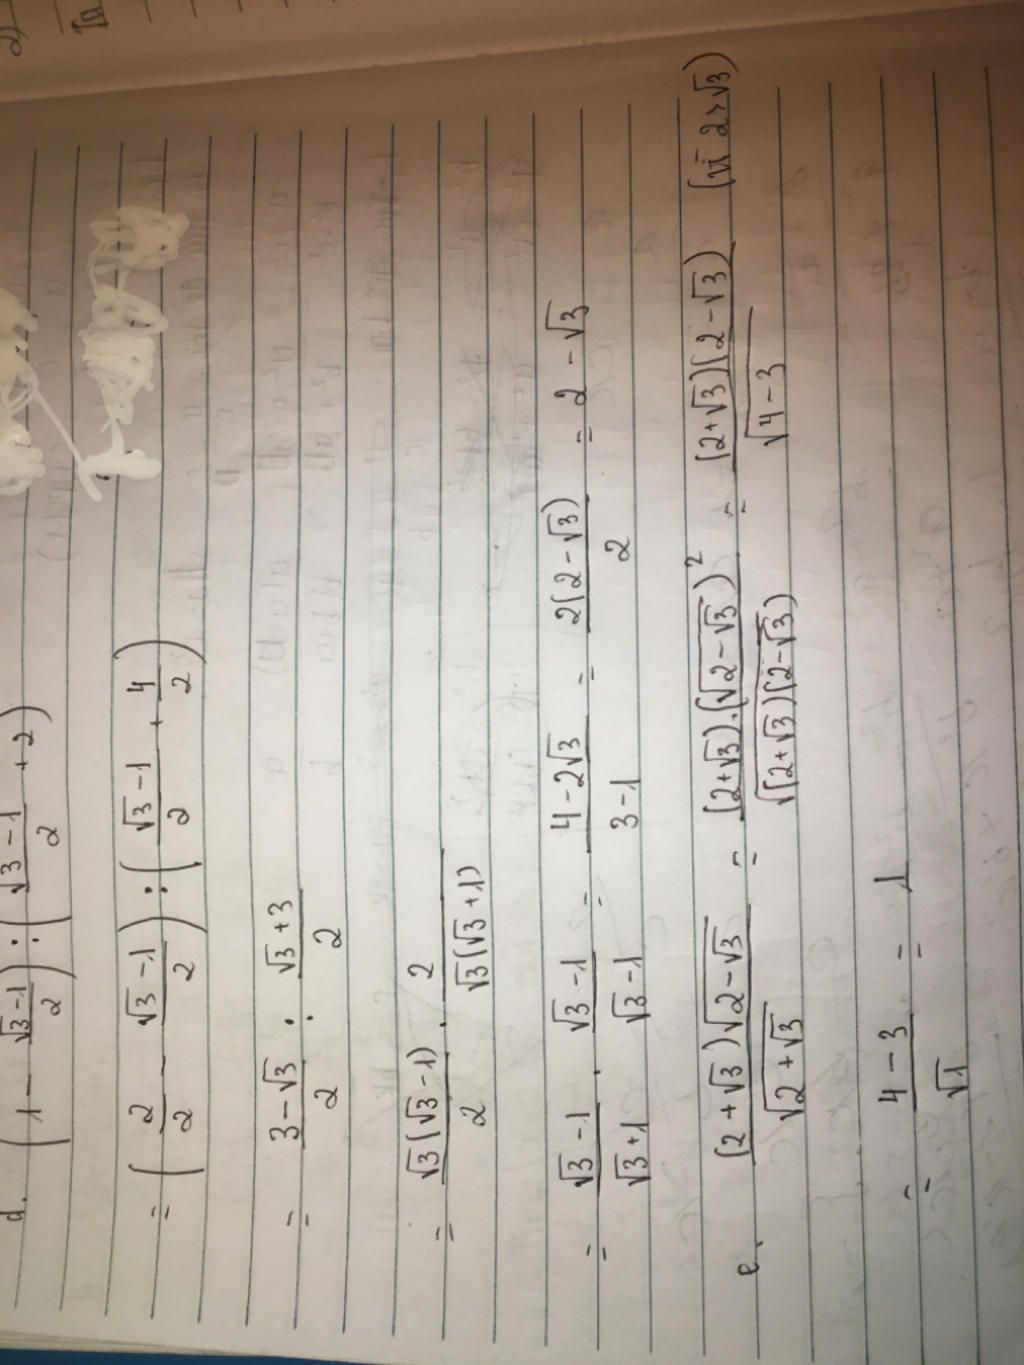 d. (1 - (√3 - 1)/2) : ((√3 - 1)/2 + 2)
= (2/2 - (√3 - 1)/2) : ((√3 - 1)/2 + 4/2)
= (3 - √3)/2 : (√3 + 3)/2
= √3(√3 - 1)/2 . 2/√3(√3 + 1)
= (√3 - 1)/(√3 + 1) . (√3 - 1)/(√3 - 1) = (4 - 2√3)/(3 - 1) = 2(2 - √3)/2 = 2 - √3
e. (2 + √3)√(2 - √3)/√(2 + √3) = (2 + √3).(√(2 - √3))²/√((2 + √3)(2 - √3)) = (2 + √3)(2 - √3)/√(4 - 3) (vì 2 > √3)
= (4 - 3)/√1 = 1